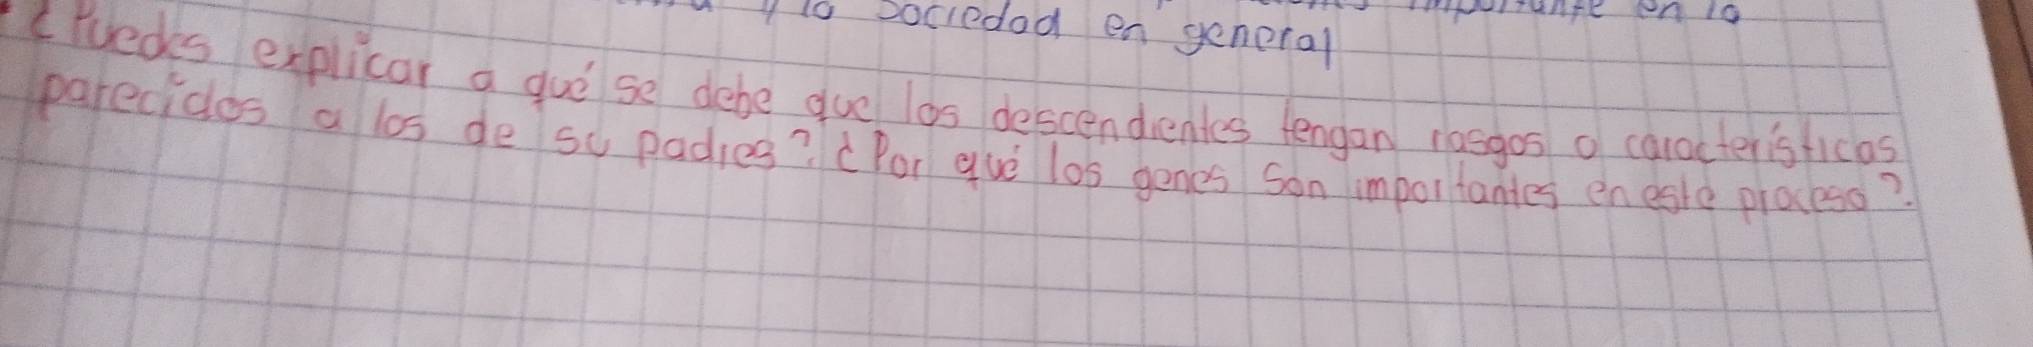 y la sociedad en general importante en la
¿Puedes explicar a qué se debe que los descendientes tengan rasgos o características
parecidos a los de su padres? ¿Por qué los genes son importantes en este proceso?